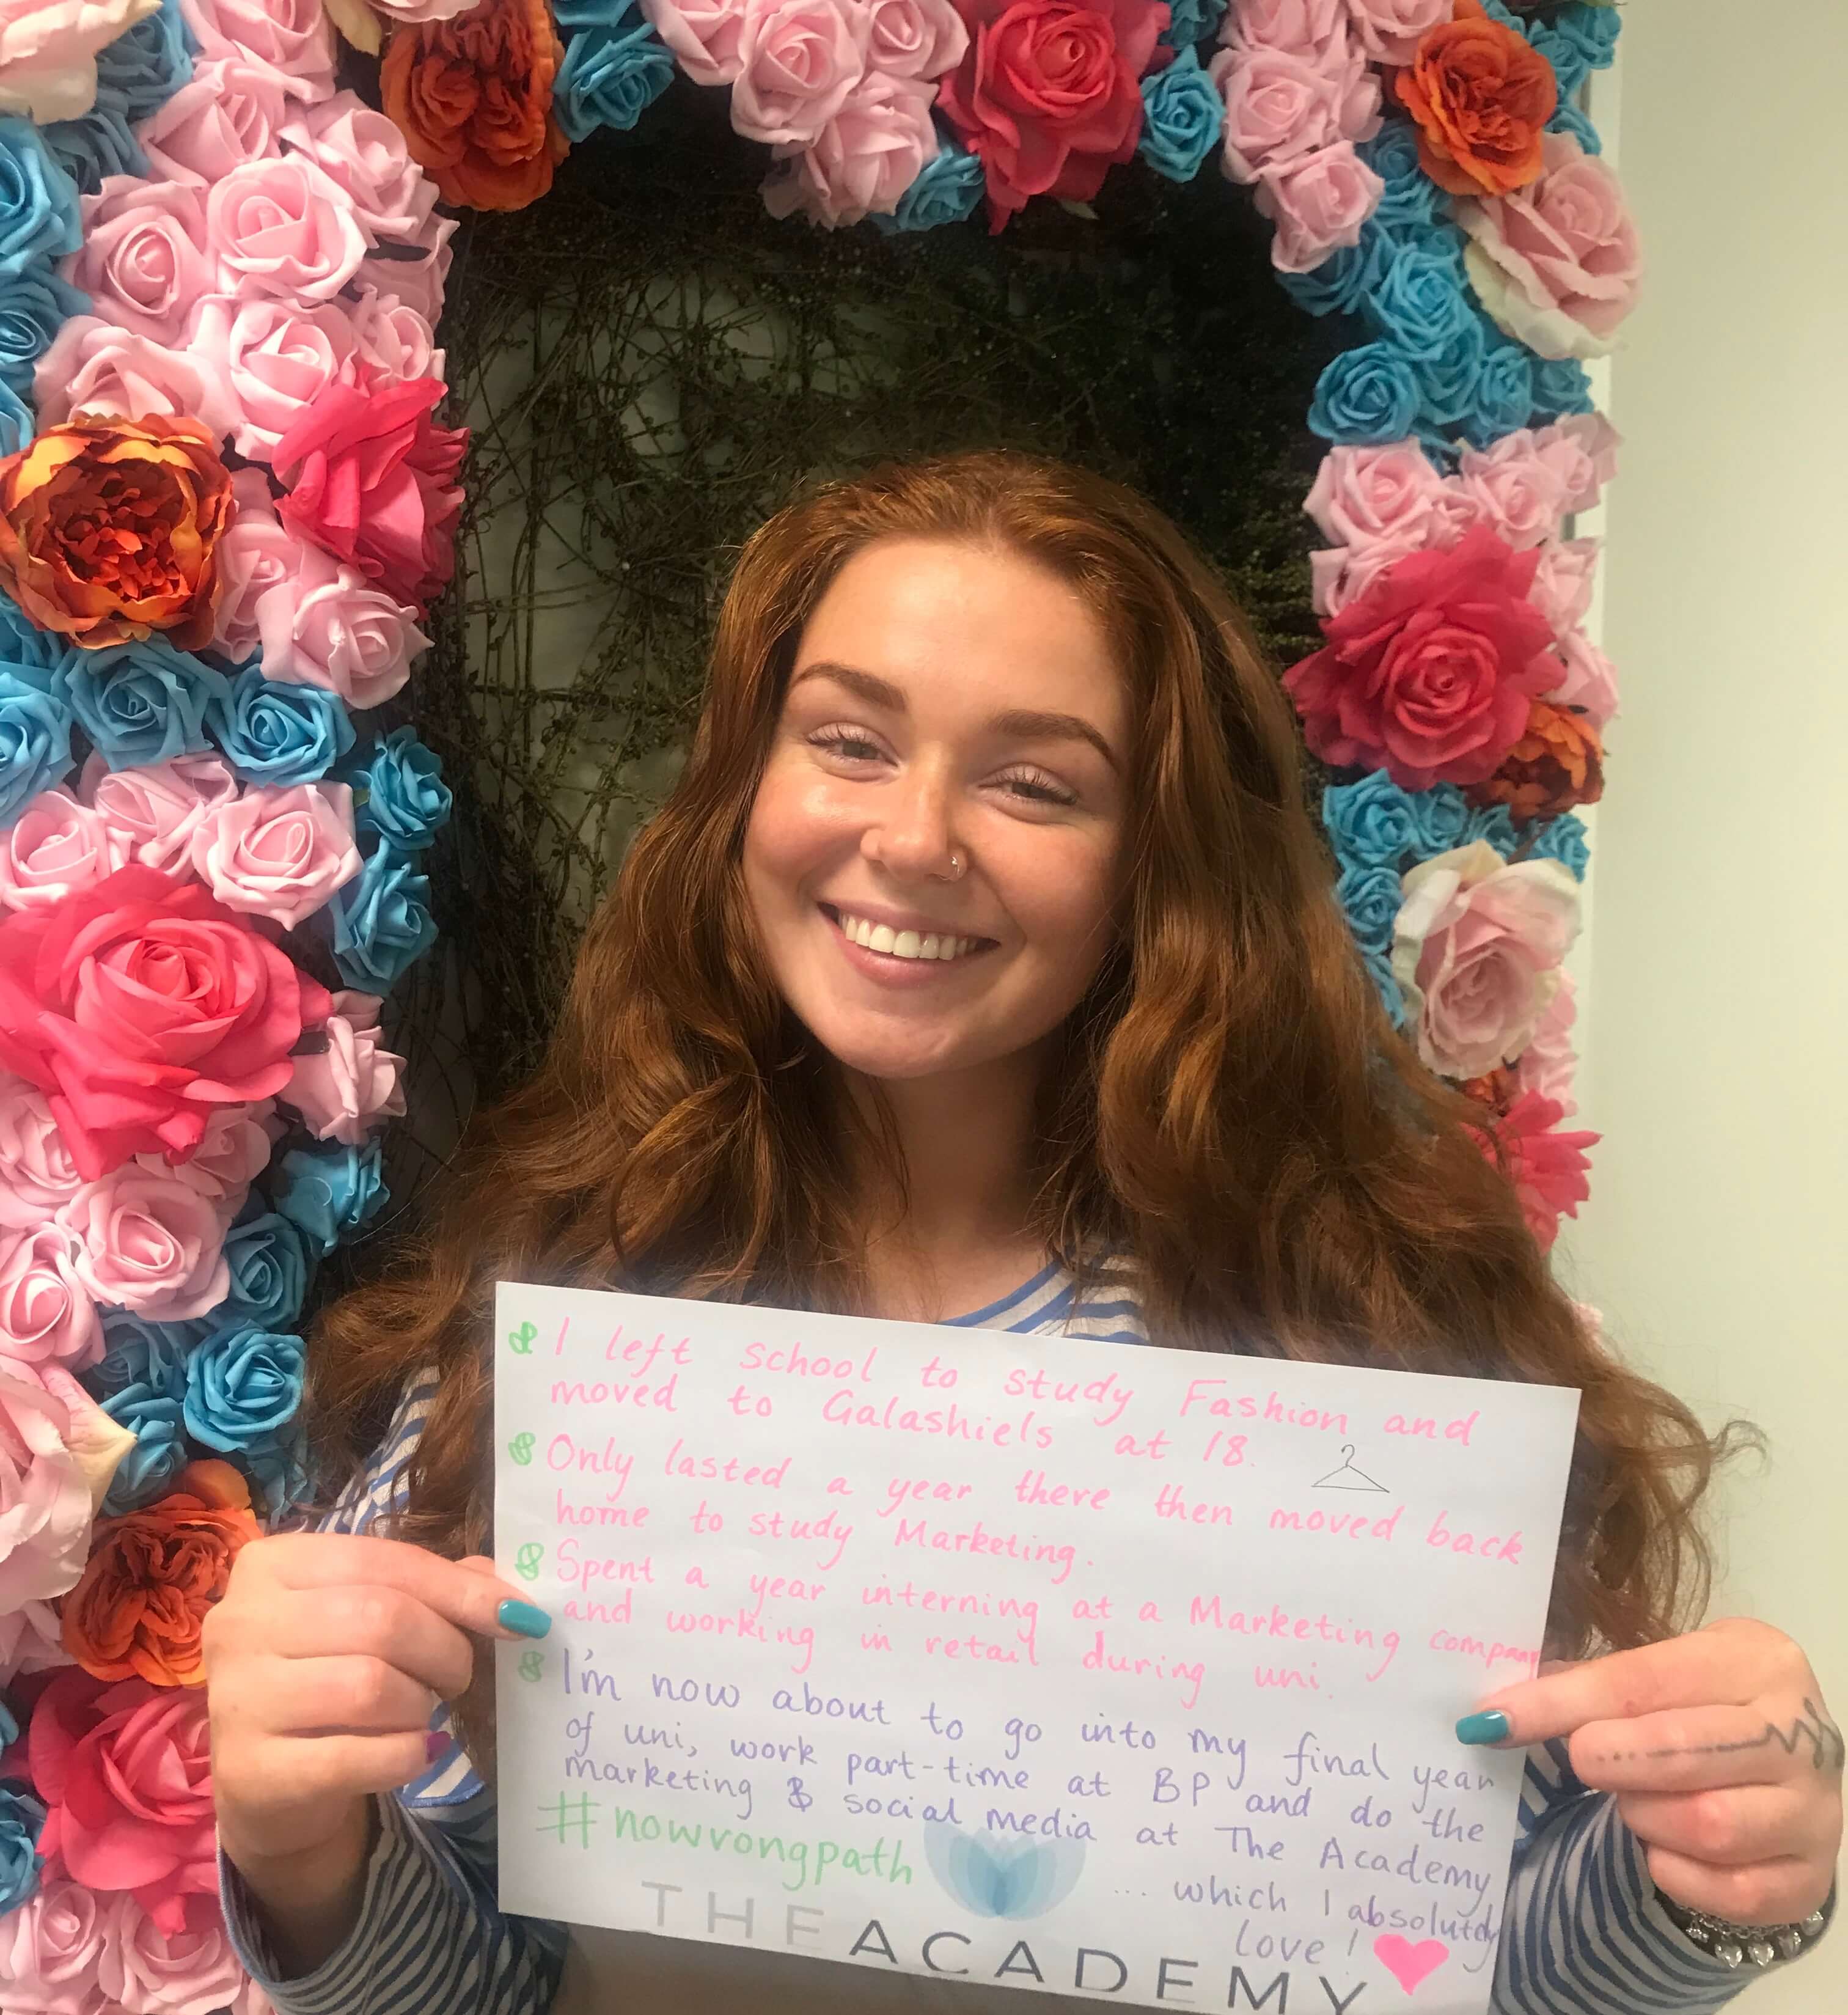 I left school to study Fashion and
moved to Galashiels at 18.
Only lasted a year there then moved back
home to study Marketing.
Spent a year interning at a Marketing company
and working in retail during uni.
I'm now about to go into my final year
of uni, work part-time at BP and do the
marketing & social media at The Academy
... which I absolutely
love!
#nowrongpath
THE ACADEMY